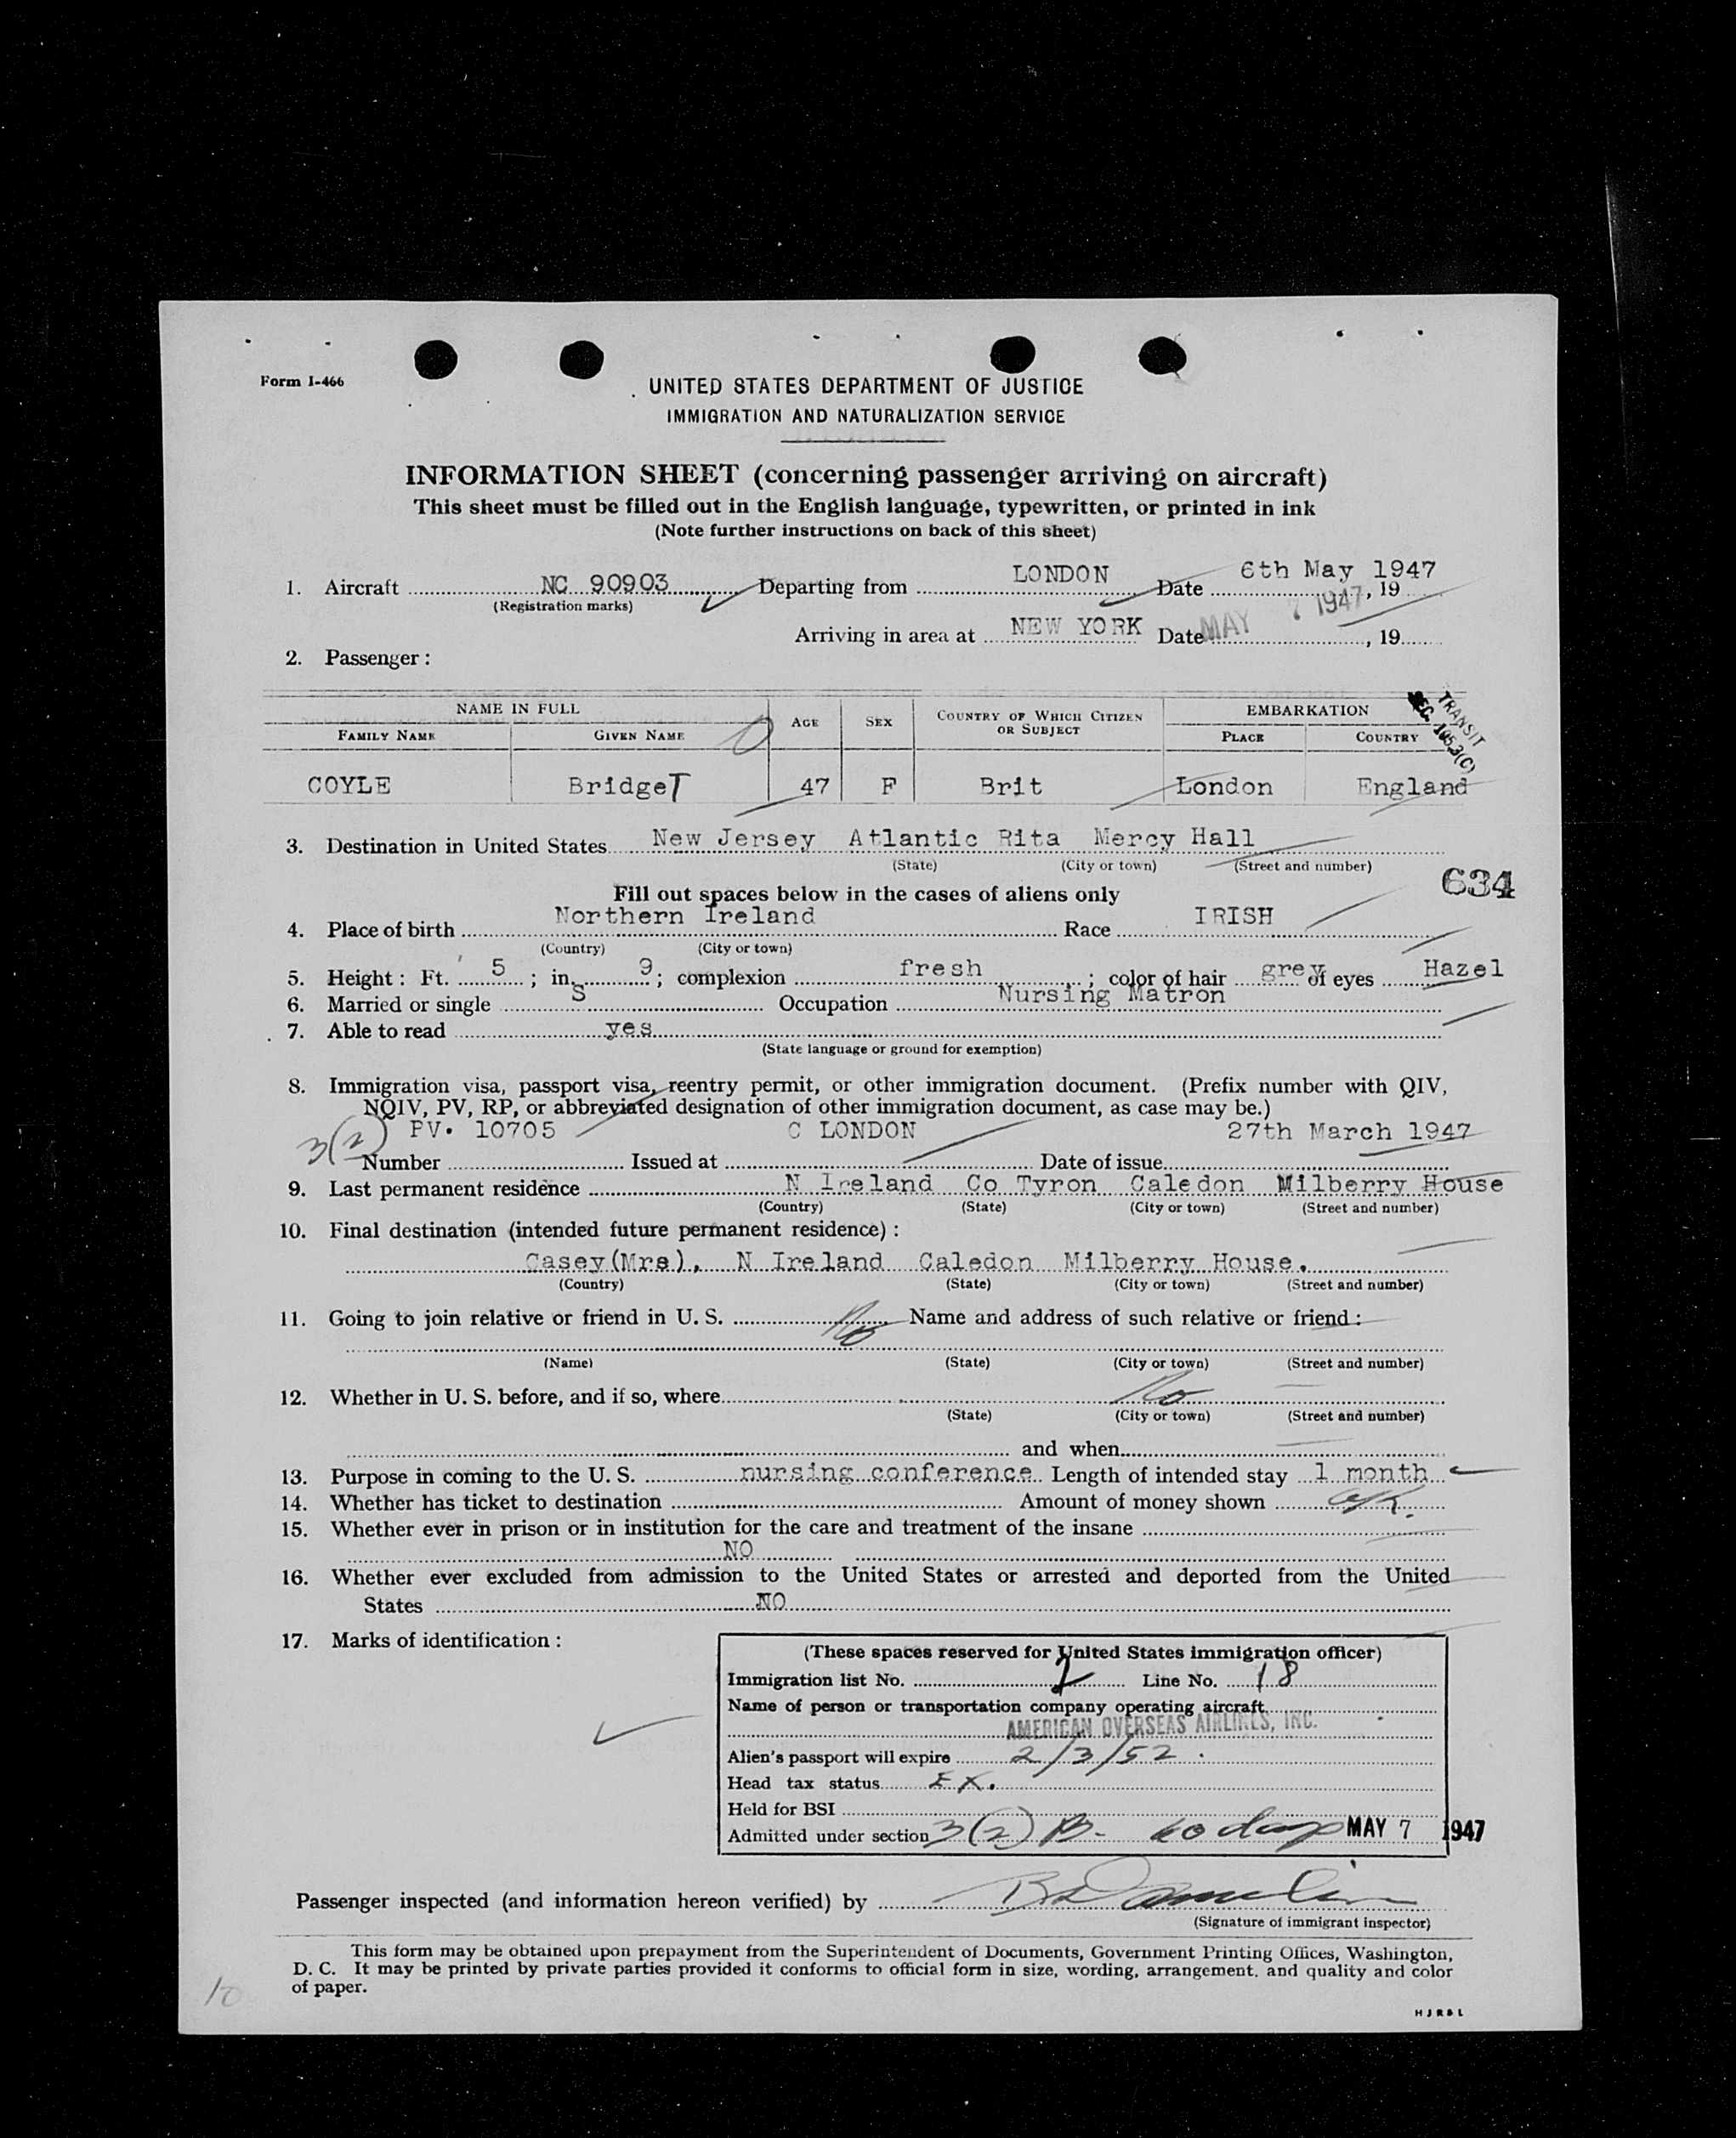 Form I-466
UNITED STATES DEPARTMENT OF JUSTICE
IMMIGRATION AND NATURALIZATION SERVICE
INFORMATION SHEET (concerning passenger arriving on aircraft)
This sheet must be filled out in the English language, typewritten, or printed in ink
(Note further instructions on back of this sheet)
1. Aircraft NC 90903 Departing from LONDON Date 6th May 1947, 19
(Registration marks)
Arriving in area at NEW YORK Date MAY 7 1947, 19
2. Passenger:
NAME IN FULL AGE SEX COUNTRY OF WHICH CITIZEN OR SUBJECT EMBARKATION
FAMILY NAME GIVEN NAME PLACE COUNTRY
TRANSIT
SEC. 105.3(C)
COYLE BridgeT 47 F Brit London England
3. Destination in United States New Jersey Atlantic Rita Mercy Hall
(State) (City or town) (Street and number)
634
Fill out spaces below in the cases of aliens only
4. Place of birth Northern Ireland Race IRISH
(Country) (City or town)
5. Height: Ft. 5; in. 9; complexion fresh; color of hair grey of eyes Hazel
6. Married or single S Occupation Nursing Matron
7. Able to read yes
(State language or ground for exemption)
8. Immigration visa, passport visa, reentry permit, or other immigration document. (Prefix number with QIV,
NQIV, PV, RP, or abbreviated designation of other immigration document, as case may be.)
3(2) PV. 10705 C LONDON 27th March 1947
Number Issued at Date of issue
9. Last permanent residence N Ireland Co Tyron Caledon Milberry House
(Country) (State) (City or town) (Street and number)
10. Final destination (intended future permanent residence):
Casey(Mrs), N Ireland Caledon Milberry House.
(Country) (State) (City or town) (Street and number)
11. Going to join relative or friend in U. S. No Name and address of such relative or friend:
(Name) (State) (City or town) (Street and number)
12. Whether in U. S. before, and if so, where No
(State) (City or town) (Street and number)
and when
13. Purpose in coming to the U. S. nursing conference Length of intended stay 1 month
14. Whether has ticket to destination Amount of money shown
15. Whether ever in prison or in institution for the care and treatment of the insane
NO
16. Whether ever excluded from admission to the United States or arrested and deported from the United
States NO
17. Marks of identification:
(These spaces reserved for United States immigration officer)
Immigration list No. 2 Line No. 18
Name of person or transportation company operating aircraft
AMERICAN OVERSEAS AIRLINES, INC.
Alien's passport will expire 2/3/52.
Head tax status EX.
Held for BSI
Admitted under section 3(2) B- 60 days MAY 7 1947
Passenger inspected (and information hereon verified) by
(Signature of immigrant inspector)
This form may be obtained upon prepayment from the Superintendent of Documents, Government Printing Offices, Washington,
D. C. It may be printed by private parties provided it conforms to official form in size, wording, arrangement, and quality and color
of paper.
10
HJR&L